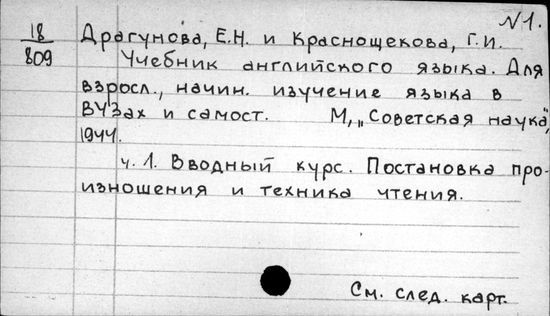 №1.
18/809 Драгунова, Е.Н. и Краснощекова, Г.И.
Учебник английского языка. Для
взросл., начин. изучение языка в
ВУЗах и самост. М, „Советская наука",
1944.
ч. 1. Вводный курс. Постановка про-
изношения и техника чтения.
См. след. карт.